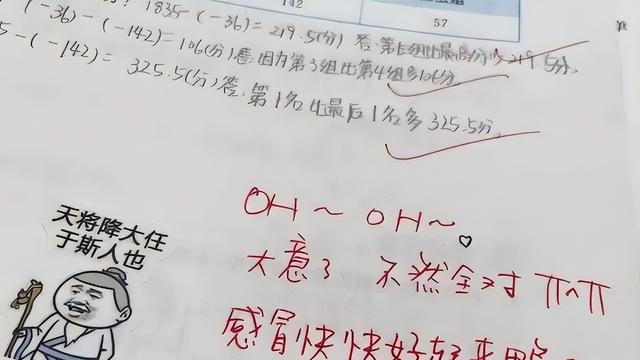 142
57
183.5-(-36)=219.5(分) 答:第1组比最高分少219.5分.
(-36)-(-142)=106(分) 答:因为第3组比第4组多106分.
5-(-142)= 325.5(分) 答:第1名比最后1名多325.5分.
OH~ OH~♡
大意了 不然全对 π^π
天将降大任
于斯人也
感冒快快好